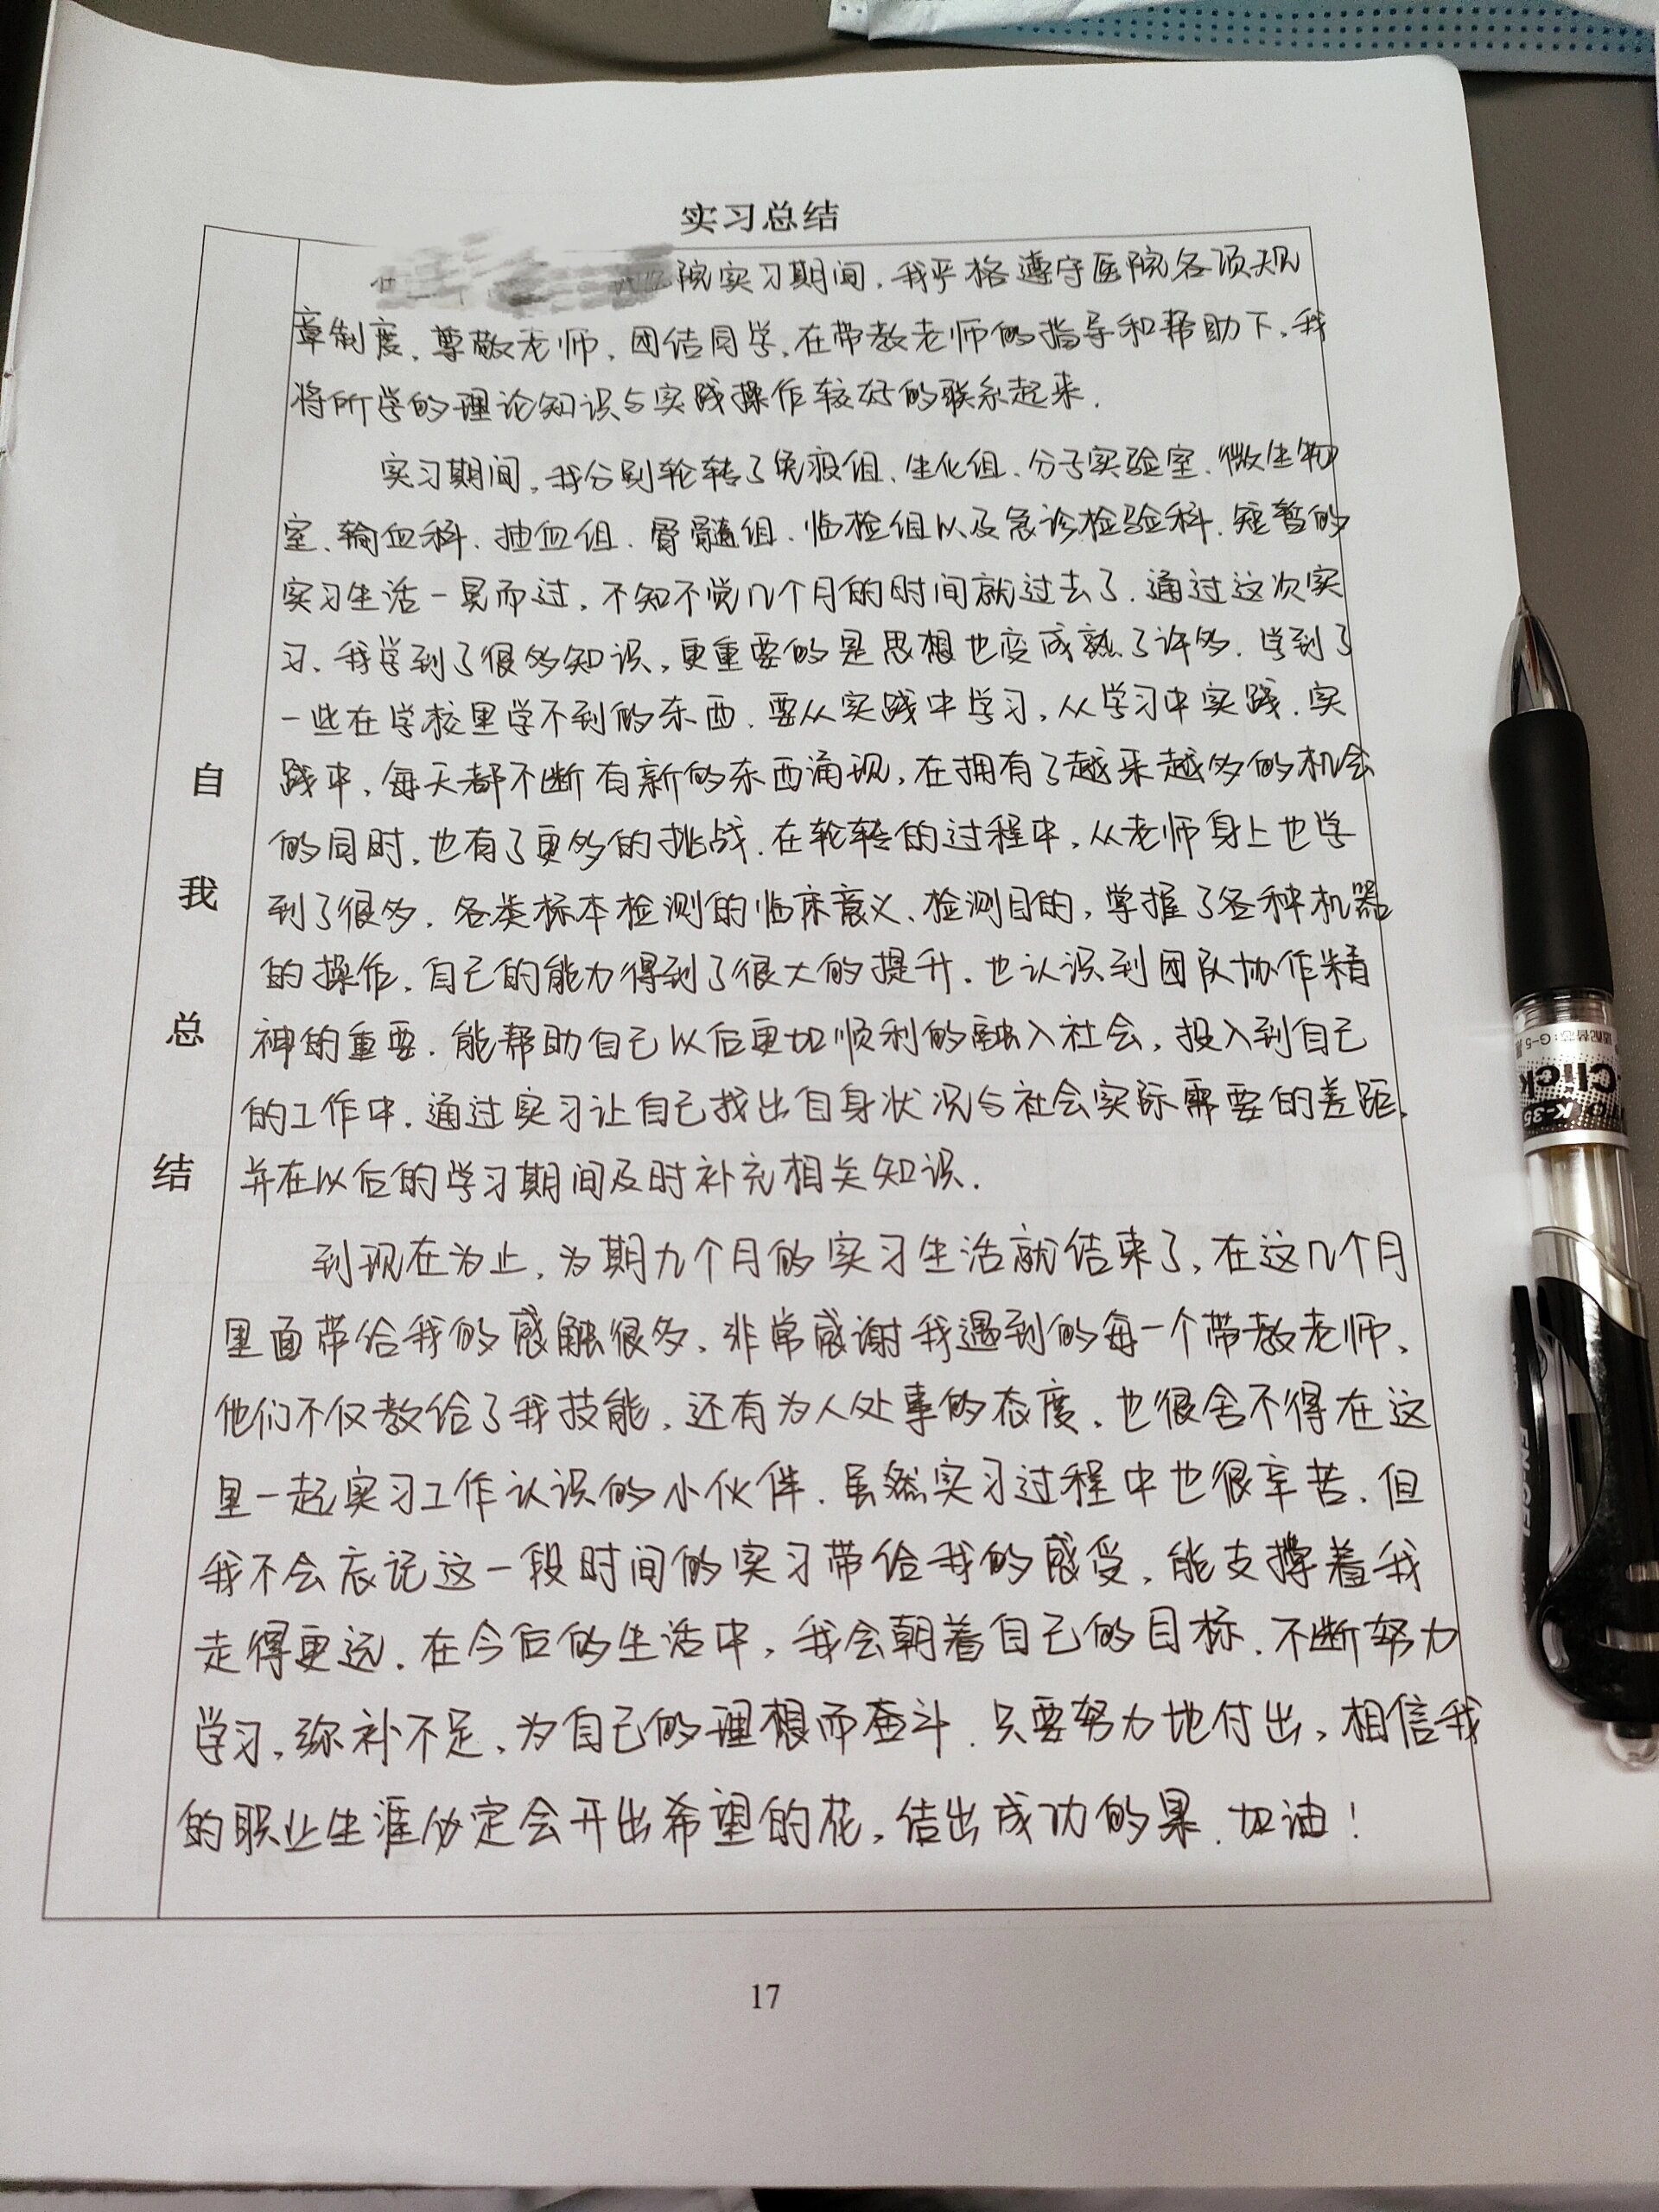 实习总结
院实习期间，我严格遵守医院各项规
章制度，尊敬老师，团结同学，在带教老师的指导和帮助下，我
将所学的理论知识与实践操作较好的联系起来．
实习期间，我分别轮转了免疫组、生化组、分子实验室、微生物
室、输血科、抽血组、骨髓组、临检组以及急诊检验科．短暂的
实习生活一晃而过，不知不觉几个月的时间就过去了．通过这次实
习，我学到了很多知识，更重要的是思想也变成熟了许多．学到了
一些在学校里学不到的东西．要从实践中学习，从学习中实践．实
践中，每天都不断有新的东西涌现，在拥有了越来越多的机会
的同时，也有了更多的挑战．在轮转的过程中，从老师身上也学
到了很多．各类标本检测的临床意义、检测目的，掌握了各种机器
的操作，自己的能力得到了很大的提升．也认识到团队协作精
神的重要．能帮助自己以后更加顺利的融入社会，投入到自己
的工作中．通过实习让自己找出自身状况与社会实际需要的差距，
并在以后的学习期间及时补充相关知识．
到现在为止，为期九个月的实习生活就结束了，在这几个月
里面带给我的感触很多，非常感谢我遇到的每一个带教老师，
他们不仅教给了我技能，还有为人处事的态度，也很舍不得在这
里一起实习工作认识的小伙伴．虽然实习过程中也很辛苦，但
我不会忘记这一段时间的实习带给我的感受，能支撑着我
走得更远．在今后的生活中，我会朝着自己的目标，不断努力
学习，弥补不足，为自己的理想而奋斗．只要努力地付出，相信我
的职业生涯必定会开出希望的花，结出成功的果．加油！
自
我
总
结
17
Click
K-35
G-5